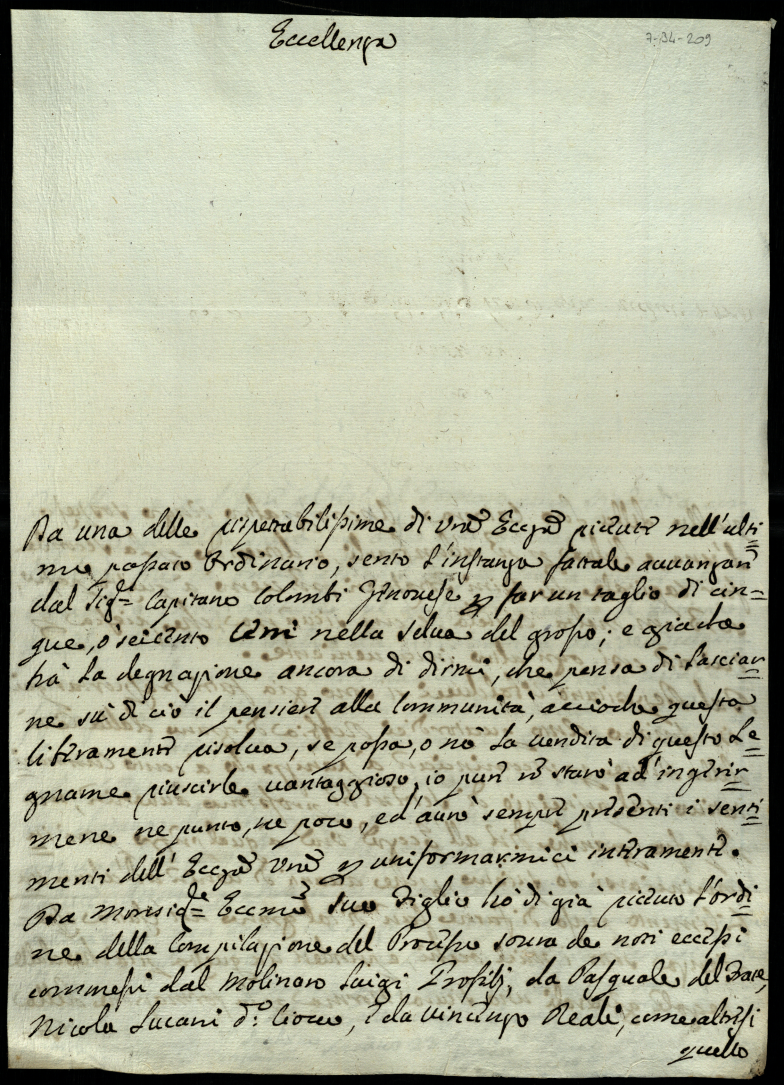 Eccellenza
7-34-209
Da una delle rispettabilissime di Vra Ecczza ricevute nell'ulti=
mo passato Ordinario, sento l'instanza fattale avvanzare
dal Sigre Capitano Colombi Genovese p far un taglio di cin=
que, o' seicento Cerri nella Selva del grosso; e giache
hà la degnazione ancora di dirmi, che pensa di lasciar=
ne sù di ciò il pensiere alla Communità, acciochè questa
liberamente risolva, se possa, o nò la vendita di questo Le=
gname riuscirle vantaggioso, io pure n starò ad' ingerir=
mene ne punto, ne poco, ed' avrò sempre presenti i senti=
menti dell' Ecczza Vra p uniformarmici interamente.
Da Monsigre Eccmo suo Figlio hò di già ricevuto l'ordi=
ne della Compilazione del Processo sovra de noti eccessi
commessi dal Molinaro Luigi Profilj, da Pasquale del
Nicola Lucani do Ciocco, e da Vincenzo Reali, come altresi
quello